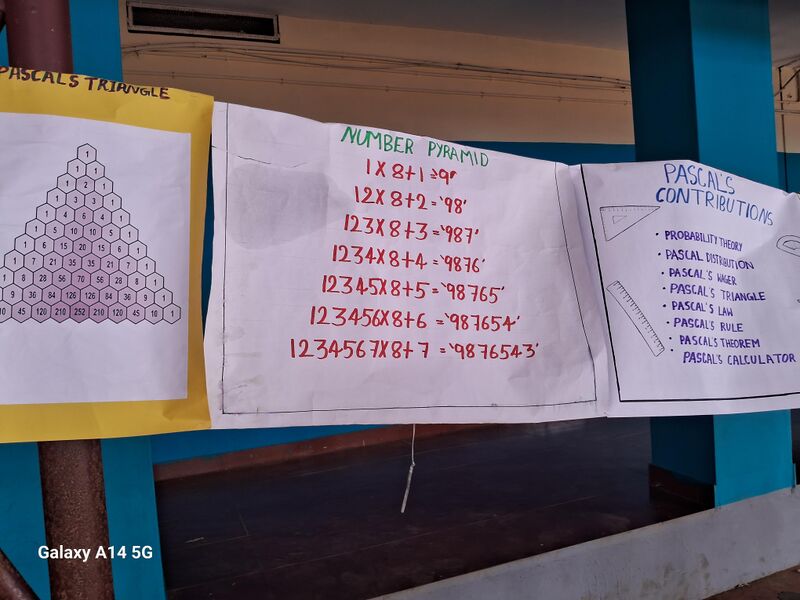 PASCAL'S TRIANGLE
1
1 1
1 2 1
1 3 3 1
1 4 6 4 1
1 5 10 10 5 1
1 6 15 20 15 6 1
1 7 21 35 35 21 7 1
1 8 28 56 70 56 28 8 1
9 36 84 126 126 84 36 9 1
10 45 120 210 252 210 120 45 10 1
NUMBER PYRAMID
1 X 8+1 = 9'
12 X 8+2 = '98'
123 X 8+3 = '987'
1234 X 8+4 = '9876'
12345 X 8+5 = '98765'
123456 X 8+6 = '987654'
1234567 X 8+7 = '9876543'
PASCAL'S
CONTRIBUTIONS
• PROBABILITY THEORY
• PASCAL DISTRIBUTION
• PASCAL'S WAGER
• PASCAL'S TRIANGLE
• PASCAL'S LAW
• PASCAL'S RULE
• PASCAL'S THEOREM
• PASCAL'S CALCULATOR
Galaxy A14 5G